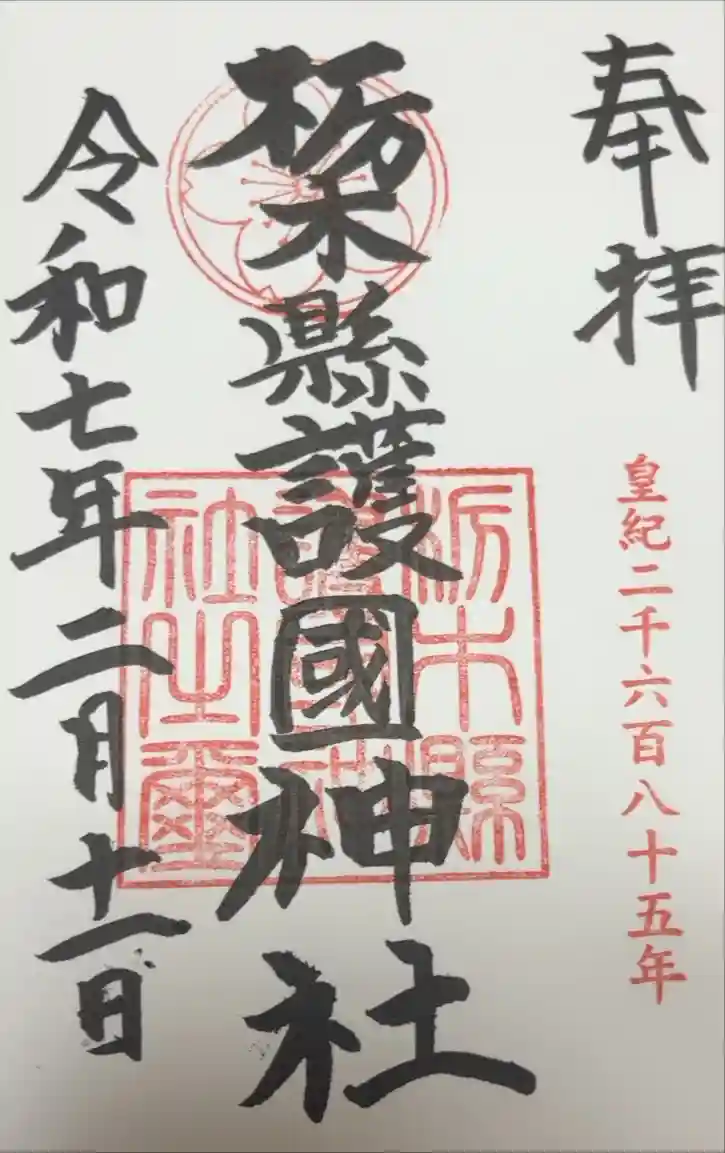 奉拝
皇紀二千六百八十五年
栃木縣護國神社
栃木縣護國神社之璽
令和七年二月十一日